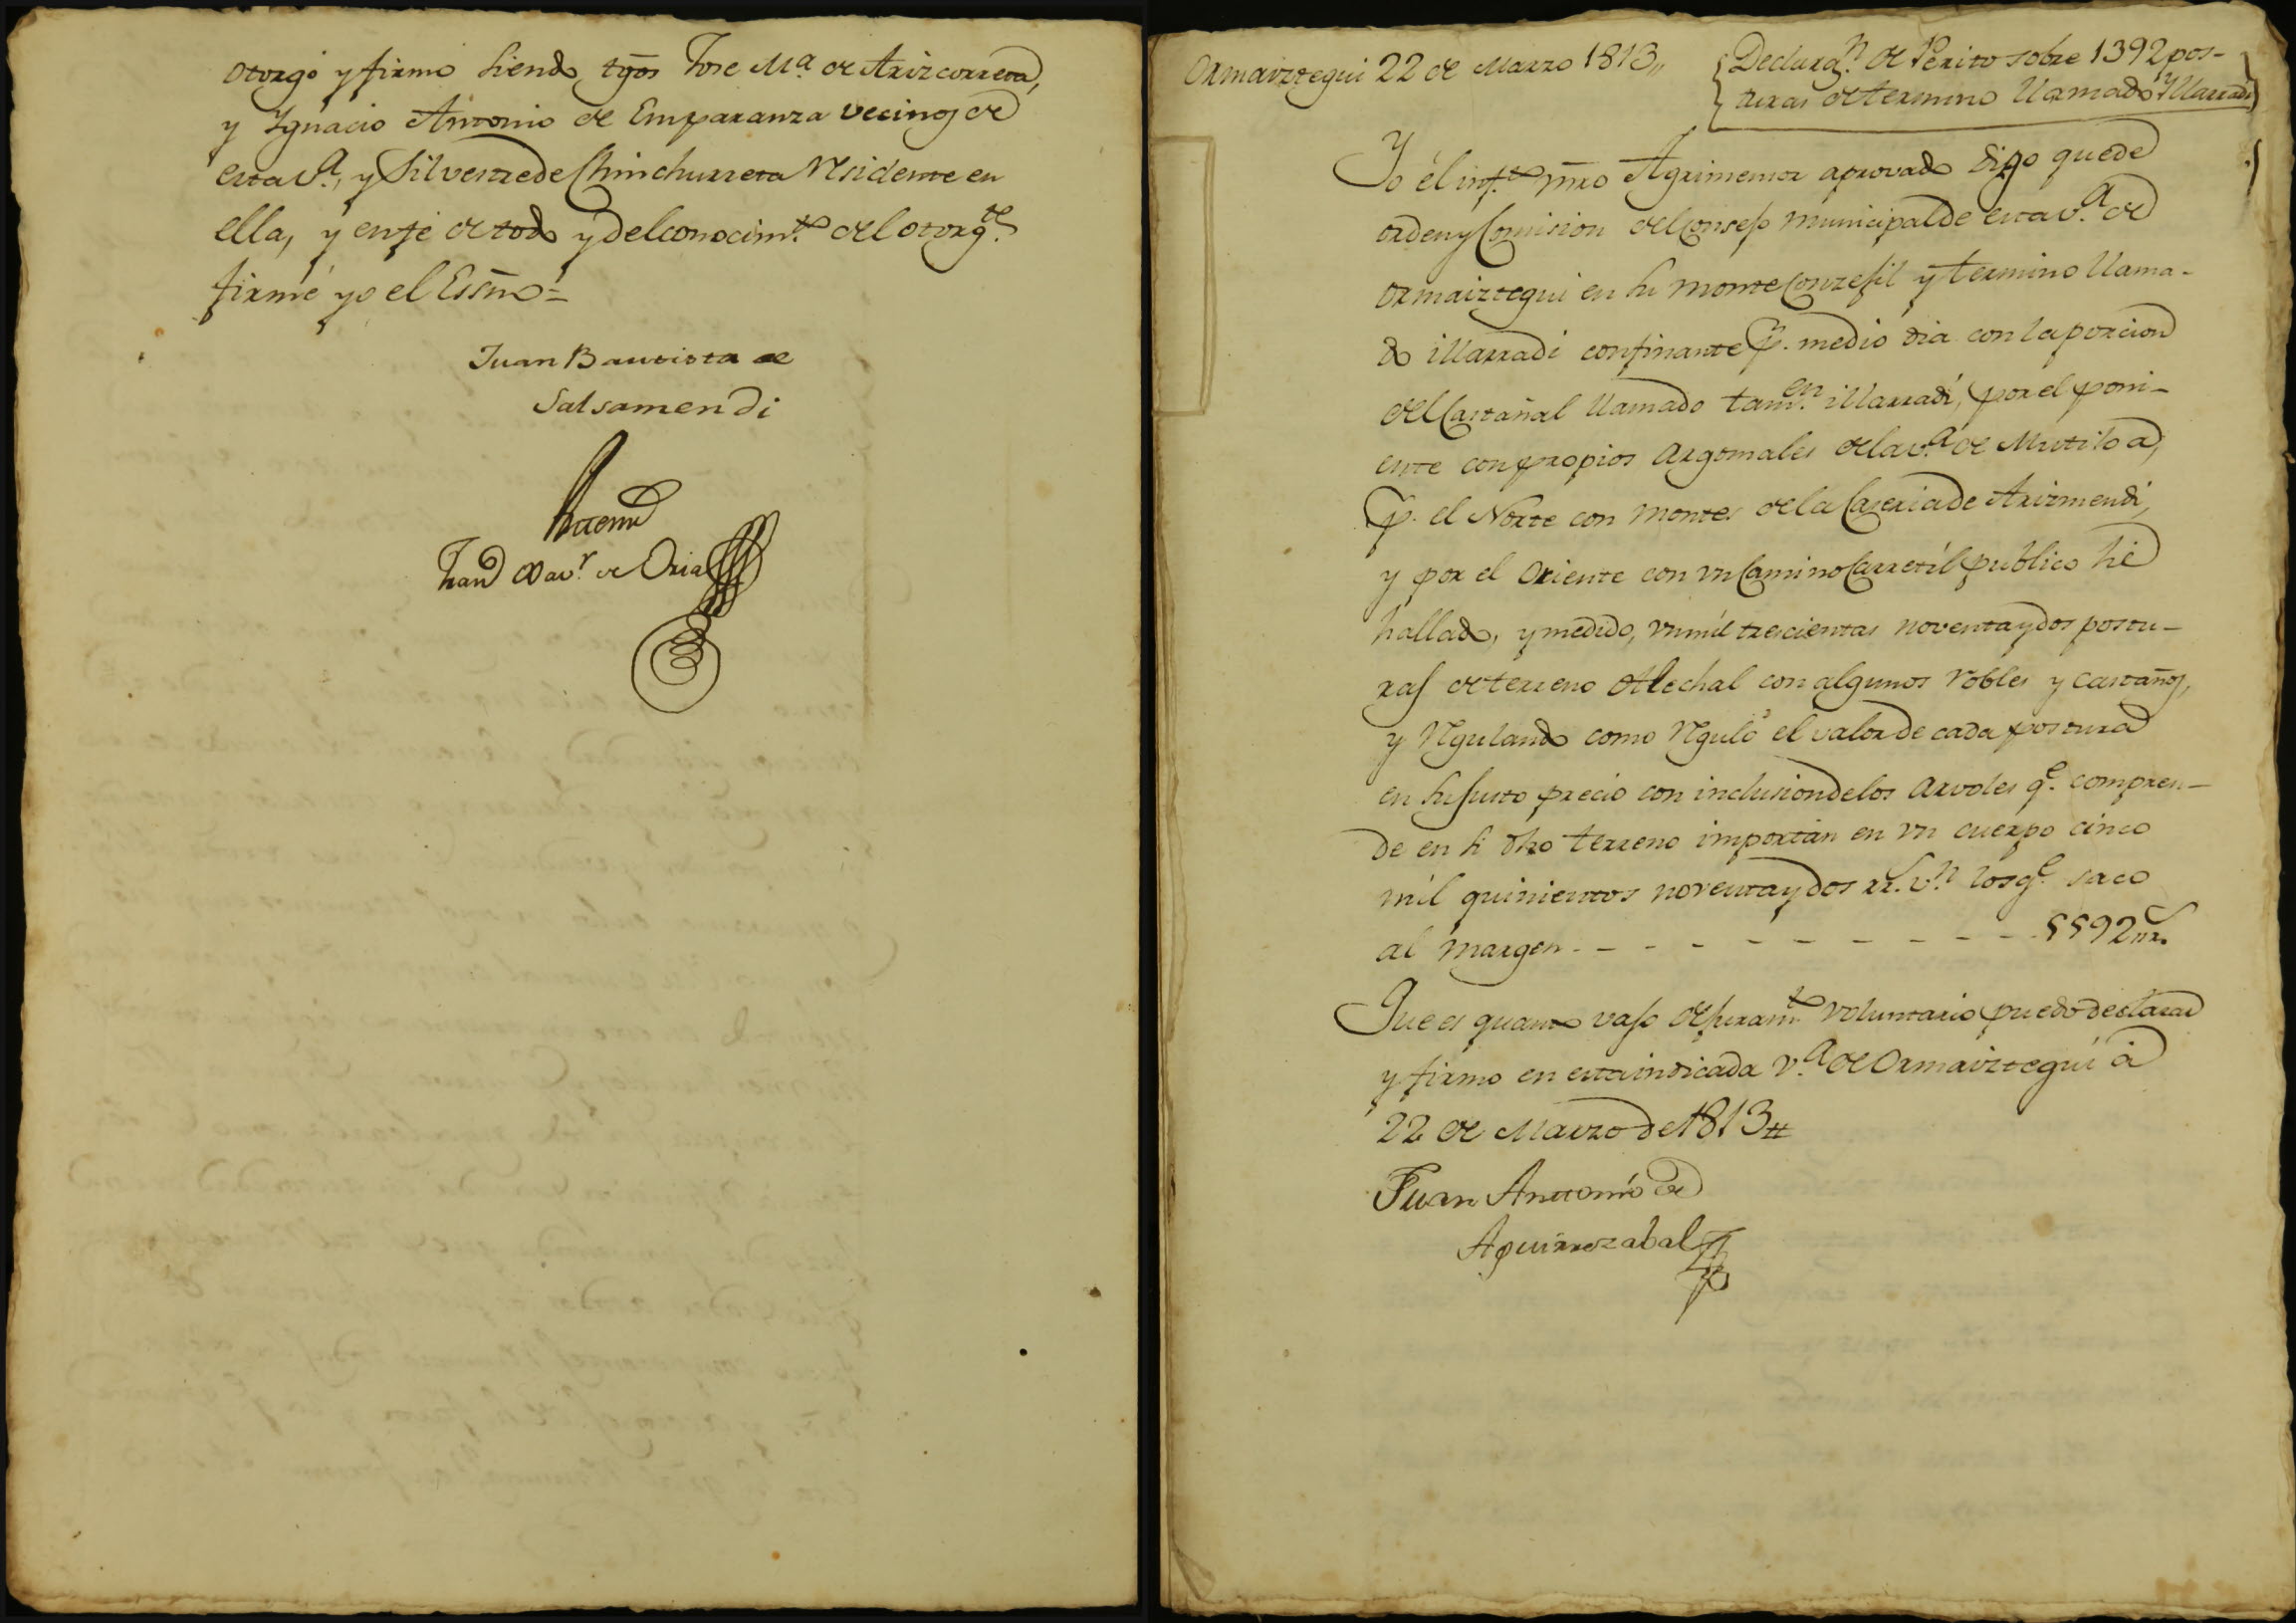 otorgó y firmo siendo tgōs Jose Mª de Arizcorreta,
y Ygnacio Antonio de Emparanza vecinos de
esta vª, y Silvestre de Chinchurreta residente en
ella, y en fe de todo y del conocimto del otorgte
firmé yo el Essno=
Juan Bautista de
Salsamendi
Antemi
Xavr de Oria
Ormaiztegui 22 de Marzo 1813,,
Declaran de Perito sobre 1392 pos-
turas de termino llamado Yllarradi
Yo él inf.to mro Agrimensor aprovado digo que de
orden y Comision del Consejo municipal de esta v.ª de
Ormaiztegui en su monte Conzejil y termino llama-
do illarradi confinante p. medio dia con la porcion
del Castañal llamado tamn. illarradi, por el poni-
ente con propios Argomales de la v.ª de Mutiloa,
p. el Norte con montes de la Caseria de Arizmendi,
y por el Oriente con vn Camino Carretíl publico hé
hallado, y medido, vn mil trescientas noventa y dos postu-
ras de terreno Elechal con algunos robles y castaños,
y regulando como reguló el valor de cada postura
en su justo precio con inclusion de los Arvoles q.e compren-
de en si dho terreno importan en vn cuerpo cinco
mil quinientos noventa y dos rr.s v.n los q.e saco
al margen - - - - - - - - - - 5592 rr.s
Que es quanto vajo de juram.to voluntario puedo declarar
y firmo en esta indicada v.ª de Ormaiztegui á
22 de Marzo de 1813
Juan Antonio de
Aguirrezabal